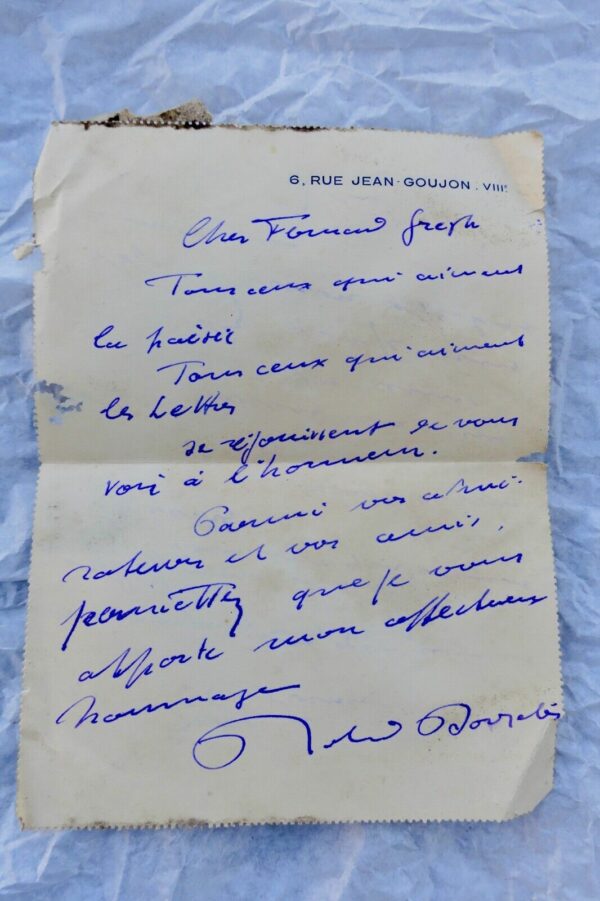 6, RUE JEAN-GOUJON. VIIIE
Cher Fernand Gregh
Tous ceux qui aiment
la poésie
Tous ceux qui aiment
les Lettres
se réjouissent de vous
voir à l'honneur.
Parmi vos admi-
rateurs et vos amis,
permettez que je vous
apporte mon affectueux
hommage